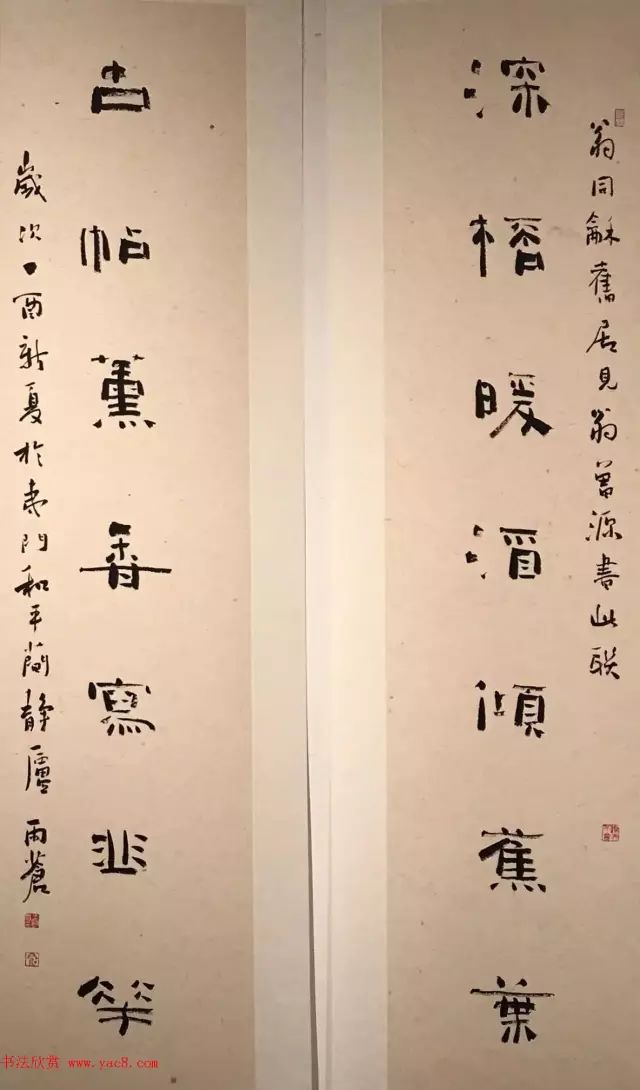 翁同龢舊居見翁曾源書此联
深暖酒傾蕉葉
古帖薰香寫韭華
歲次丁酉新夏於東門和平蘭靜廬 雨蒼
书法欣赏 www.yac8.com